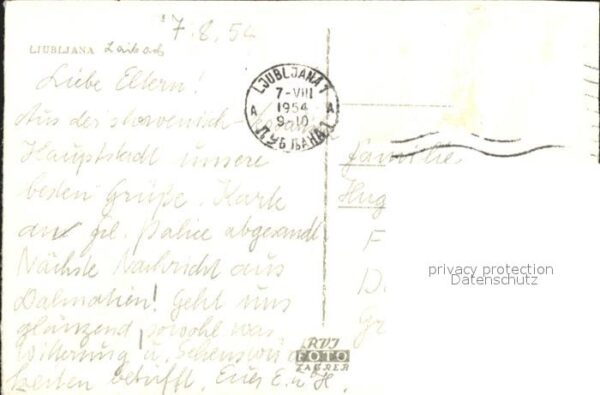 7.8.54
LJUBLJANA Laibach
Liebe Eltern!
Aus der slowenischen
Hauptstadt unsere
besten Grüße. Karte
an frl. Palice abgesandt
Nächste Nachricht aus
Dalmatien! Geht uns
glänzend, sowohl was
Witterung u. Sehenswürdig
keiten betrifft. Eure E. u. H.
LJUBLJANA 1
7-VIII
1954
9-10
A A
ЉУБЉАНА 1
Familie
Hug
F
D
Gr
privacy protection
Datenschutz
RVI
FOTO
ZAGREB